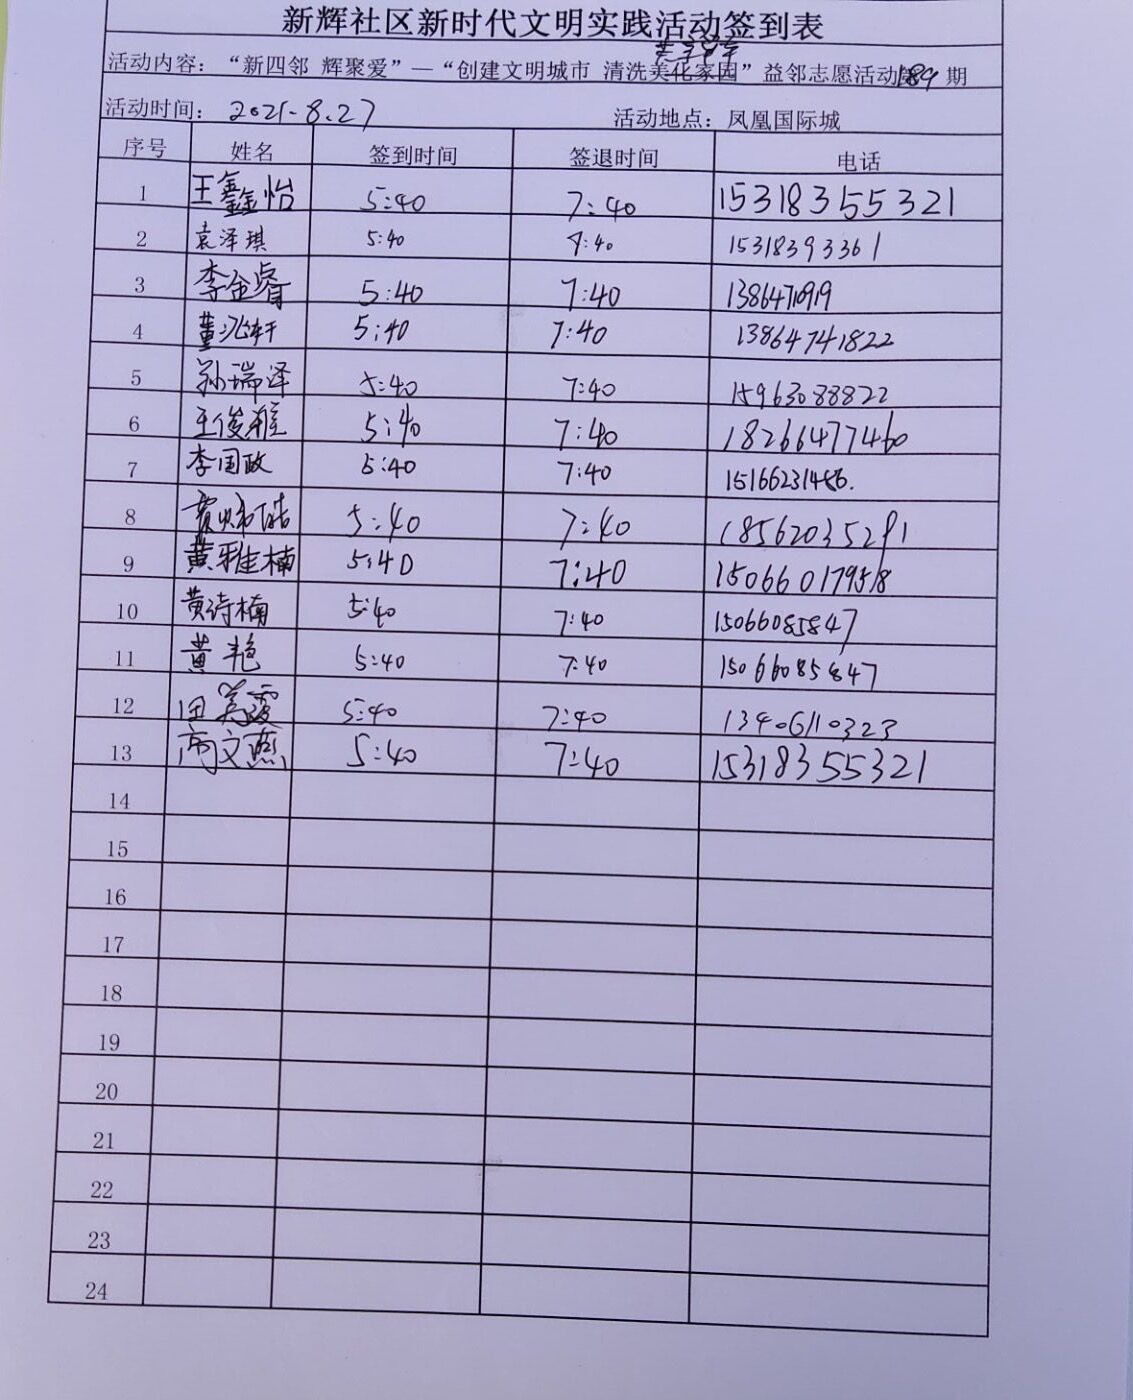 新辉社区新时代文明实践活动签到表
活动内容：“新四邻 辉聚爱”—“创建文明城市 清洗美化家园”益邻志愿活动189期
活动时间：2021.8.27 活动地点：凤凰国际城
序号 姓名 签到时间 签退时间 电话
1 王鑫怡 5:40 7:40 15318355321
2 袁泽琪 5:40 7:40 15318393361
3 李金睿 5:40 7:40
4 董兆轩 5:40 7:40 13864741822
5 孙瑞泽 5:40 7:40 15963088822
6 王俊雅 5:40 7:40 18266477460
7 李国政 5:40 7:40
8 5:40 7:40 18562035291
9 黄雅楠 5:40 7:40
10 黄诗楠 5:40 7:40 15066085847
11 黄艳 5:40 7:40 15066085847
12 田美霞 5:40 7:40 13406110323
13 高文燕 5:40 7:40 15318355321
14
15
16
17
18
19
20
21
22
23
24